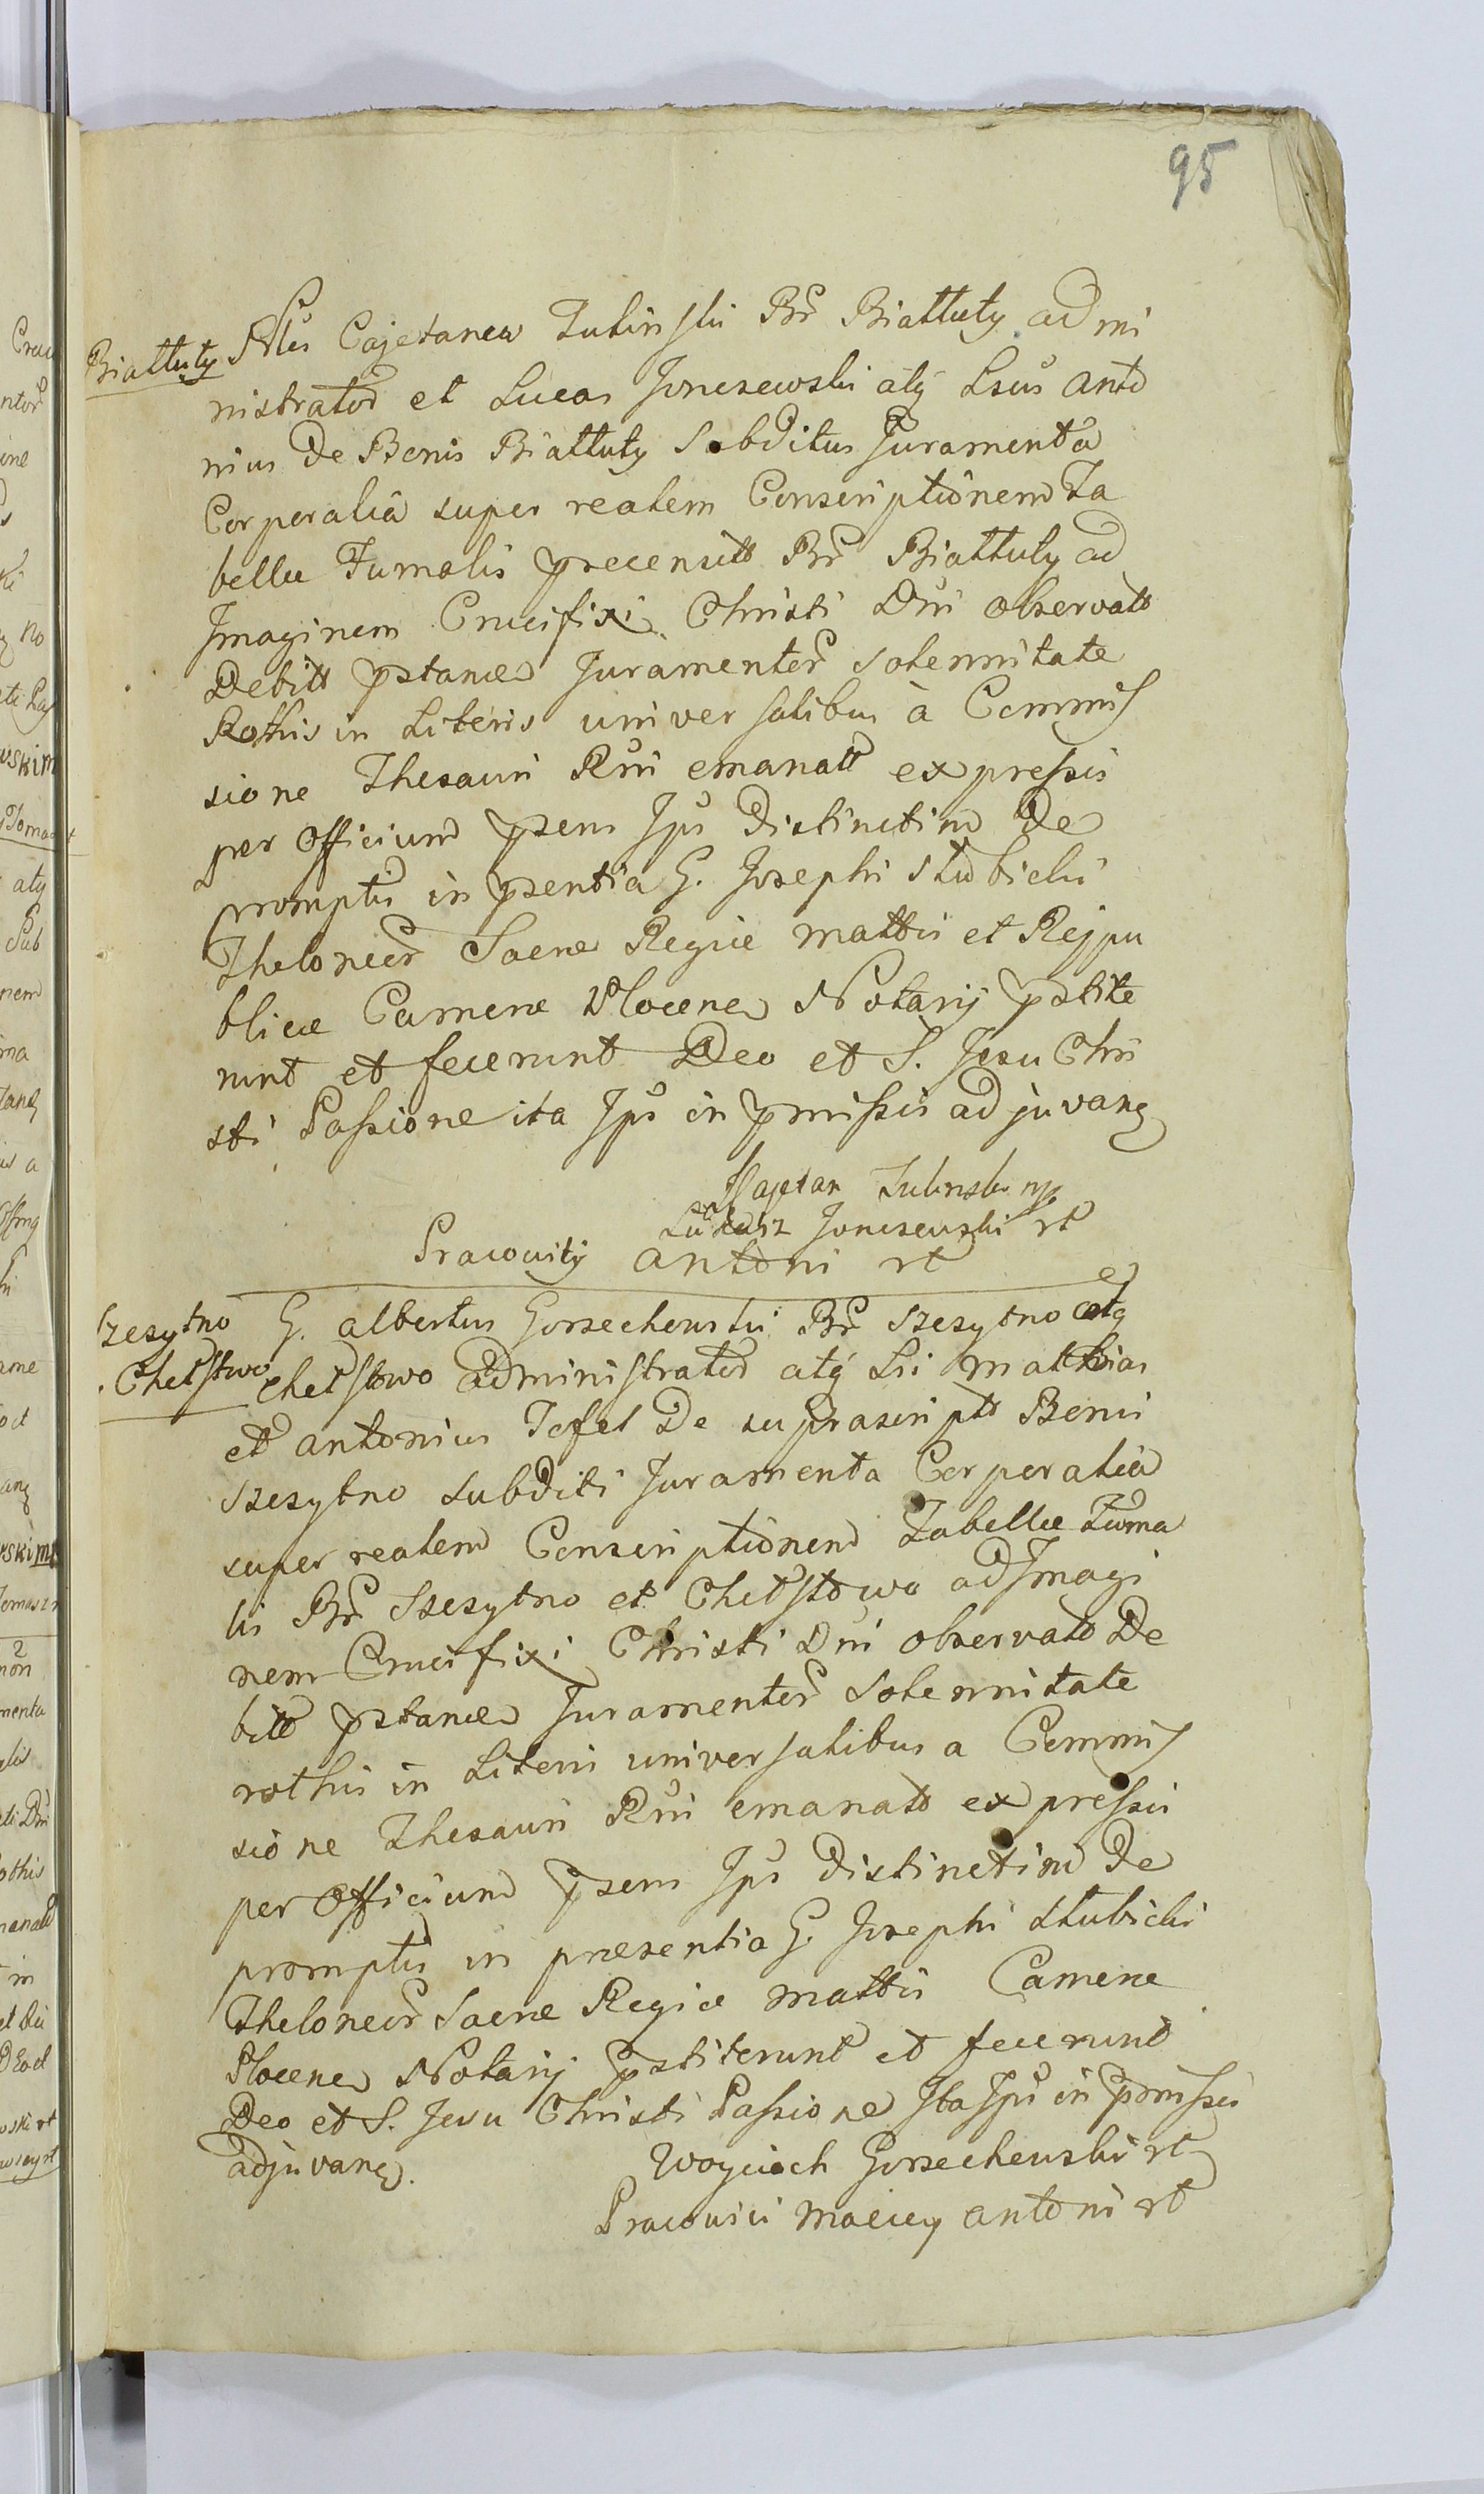 95
Biattuty Nlis Cajetanus Zubinski Br Biattuty admi
nistrator et Lucas Jonczewski atq Lsus anto
nius De Bonis Biattuty Subditus Juramenta
Corporalia super realem Conscriptionem Ta
bellæ Fumalis præcensitt Br Biattuty ad
Imaginem Crucifixi Christi Dni observato
Debitt pstance Juramentor solennitate
Rothis in Literis universalibus à Commis
sione Thesauri Rni emanatt expressis
per Officium psens Jps Distinctim De
promptis in psentia G. Josephi Slubicki
Theloneor Sacræ Regiæ mattis et Rejpu
blicæ Cameræ Plocen Notarij pstite
runt et fecerunt Deo et S. Jesu Chri
sti Passione ita Jps in pmissis adjuvanq
Kajetan Zubinski mp
Lukasz Jonczewski rt
Pracowity antoni rt
Szczytno G. albertus Gorzechowski Br Szczytno atq
Chetstwo Chetstowo administrator atq Lsi matthias
et antonius Tefel De suprascripto Bonis
Szczytno subditi Juramenta Corporalia
super realem Conscriptionem Tabellæ Fuma
lis Br Szczytno et Chetstowo ad Imagi
nem Crucifixi Christi Dni observato De
bitt pstance Juramentor Solennitate
rothis in Literis universalibus a Commis
sione Thesauri Rni emanato expressis
per Officium psens Jps Distinctim De
promptis in præsentia G. Josephi Slubicki
Theloneor Sacræ Regiæ mattis Cameræ
Plocen Notarij pstiterunt et fecerunt
Deo et S. Jesu Christi Passione Ita Jps in pmissis
adjuvanq. Woyciech Gorzechowski rt
Pracowici Maciey antoni rt